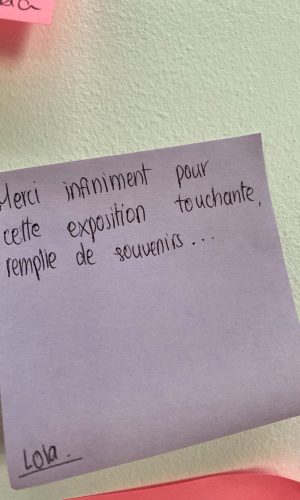 Merci infiniment pour
cette exposition touchante,
remplie de souvenirs...
Lola.